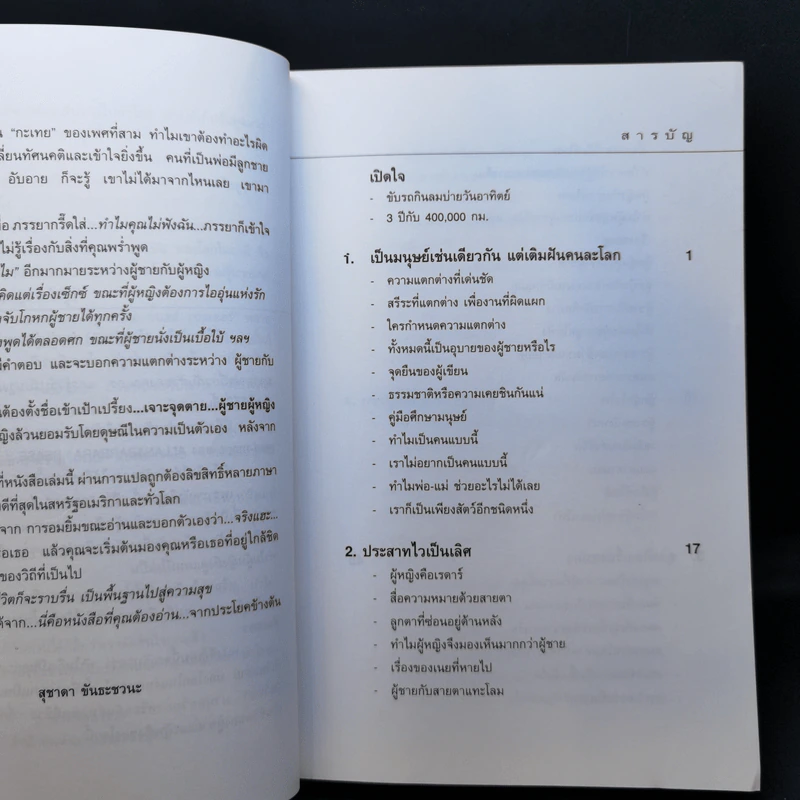 “กะเทย” ของเพศที่สาม ทำไมเขาต้องทำอะไรผิด
ลี่ยนทัศนคติและเข้าใจยิ่งขึ้น คนที่เป็นพ่อมีลูกชาย
อับอาย ก็จะรู้ เขาไม่ได้มาจากไหนเลย เขามา
ภรรยากรี๊ดใส่...ทำไมคุณไม่ฟังฉัน...ภรรยาก็เข้าใจ
ไม่รู้เรื่องกับสิ่งที่คุณพร่ำพูด
อีกมากมายระหว่างผู้ชายกับผู้หญิง
คิดแต่เรื่องเซ็กซ์ ขณะที่ผู้หญิงต้องการไออุ่นแห่งรัก
จับโกหกผู้ชายได้ทุกครั้ง
พูดได้ตลอดศก ขณะที่ผู้ชายนั่งเป็นเบื้อใบ้ ฯลฯ
คำตอบ และจะบอกความแตกต่างระหว่าง ผู้ชายกับ
ต้องตั้งชื่อเข้าเป้าเปรี้ยง...เจาะจุดตาย...ผู้ชายผู้หญิง
ล้วนยอมรับโดยดุษณีในความเป็นตัวเอง หลังจาก
ที่หนังสือเล่มนี้ ผ่านการแปลถูกต้องลิขสิทธิ์หลายภาษา
ดีที่สุดในสหรัฐอเมริกาและทั่วโลก
จาก การอมยิ้มขณะอ่านและบอกตัวเองว่า...จริงแฮะ...
เธอ แล้วคุณจะเริ่มต้นมองคุณหรือเธอที่อยู่ใกล้ชิด
ของวิถีที่เป็นไป
ก็จะราบรื่น เป็นพื้นฐานไปสู่ความสุข
จาก...นี่คือหนังสือที่คุณต้องอ่าน...จากประโยคข้างต้น
สุชาดา ขันธะชวนะ
สารบัญ
เปิดใจ
- ขับรถกินลมบ่ายวันอาทิตย์
- 3 ปีกับ 400,000 กม.
1. เป็นมนุษย์เช่นเดียวกัน แต่เดิมฝันคนละโลก 1
- ความแตกต่างที่เด่นชัด
- สรีระที่แตกต่าง เพื่องานที่ผิดแผก
- ใครกำหนดความแตกต่าง
- ทั้งหมดนี้เป็นอุบายของผู้ชายหรือไร
- จุดยืนของผู้เขียน
- ธรรมชาติหรือความเคยชินกันแน่
- คู่มือศึกษามนุษย์
- ทำไมเป็นคนแบบนี้
- เราไม่อยากเป็นคนแบบนี้
- ทำไมพ่อ-แม่ ช่วยอะไรไม่ได้เลย
- เราก็เป็นเพียงสัตว์อีกชนิดหนึ่ง
2. ประสาทไวเป็นเลิศ 17
- ผู้หญิงคือเรดาร์
- สื่อความหมายด้วยสายตา
- ลูกตาที่ซ่อนอยู่ด้านหลัง
- ทำไมผู้หญิงจึงมองเห็นมากกว่าผู้ชาย
- เรื่องของเนยที่หายไป
- ผู้ชายกับสายตาแทะโลม